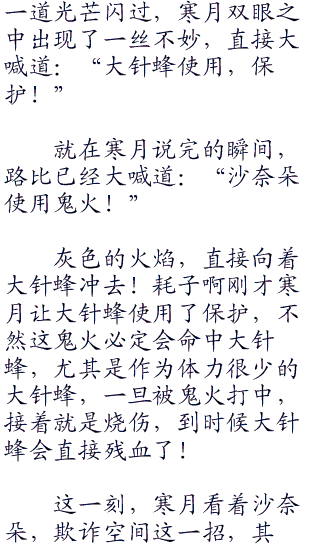 一道光芒闪过，寒月双眼之
中出现了一丝不妙，直接大
喊道：“大针蜂使用，保
护！”
就在寒月说完的瞬间，
路比已经大喊道：“沙奈朵
使用鬼火！”
灰色的火焰，直接向着
大针蜂冲去！耗子啊刚才寒
月让大针蜂使用了保护，不
然这鬼火必定会命中大针
蜂，尤其是作为体力很少的
大针蜂，一旦被鬼火打中，
接着就是烧伤，到时候大针
蜂会直接残血了！
这一刻，寒月看着沙奈
朵，欺诈空间这一招，其